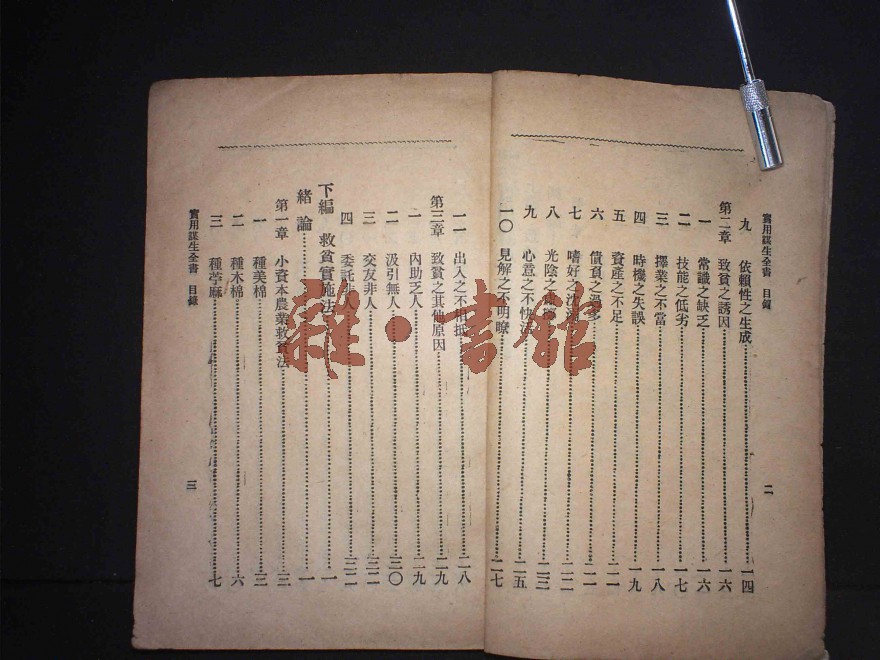 實用謀生全書 目錄
二
九 依賴性之生成……一四
第二章 致貧之誘因……一六
一 常識之缺乏……一六
二 技能之低劣……一七
三 擇業之不當……一八
四 時機之失誤……一九
五 資產之不足……二一
六 債負之過多……二一
七 嗜好之沈……二二
八 光陰之虛……二三
九 心意之不快……二五
一〇 見解之不明瞭……二七
一一 出入之不相抵……二八
第三章 致貧之其他原因……二九
一 內助乏人……二九
二 汲引無人……三〇
三 交友非人……三二
四 委託非人……三二
下編 救貧實施法……一
緒論……一
第一章 小資本農業救貧法……三
一 種美棉……三
二 種木棉……六
三 種苧麻……七
實用謀生全書 目錄
三
雜·書館